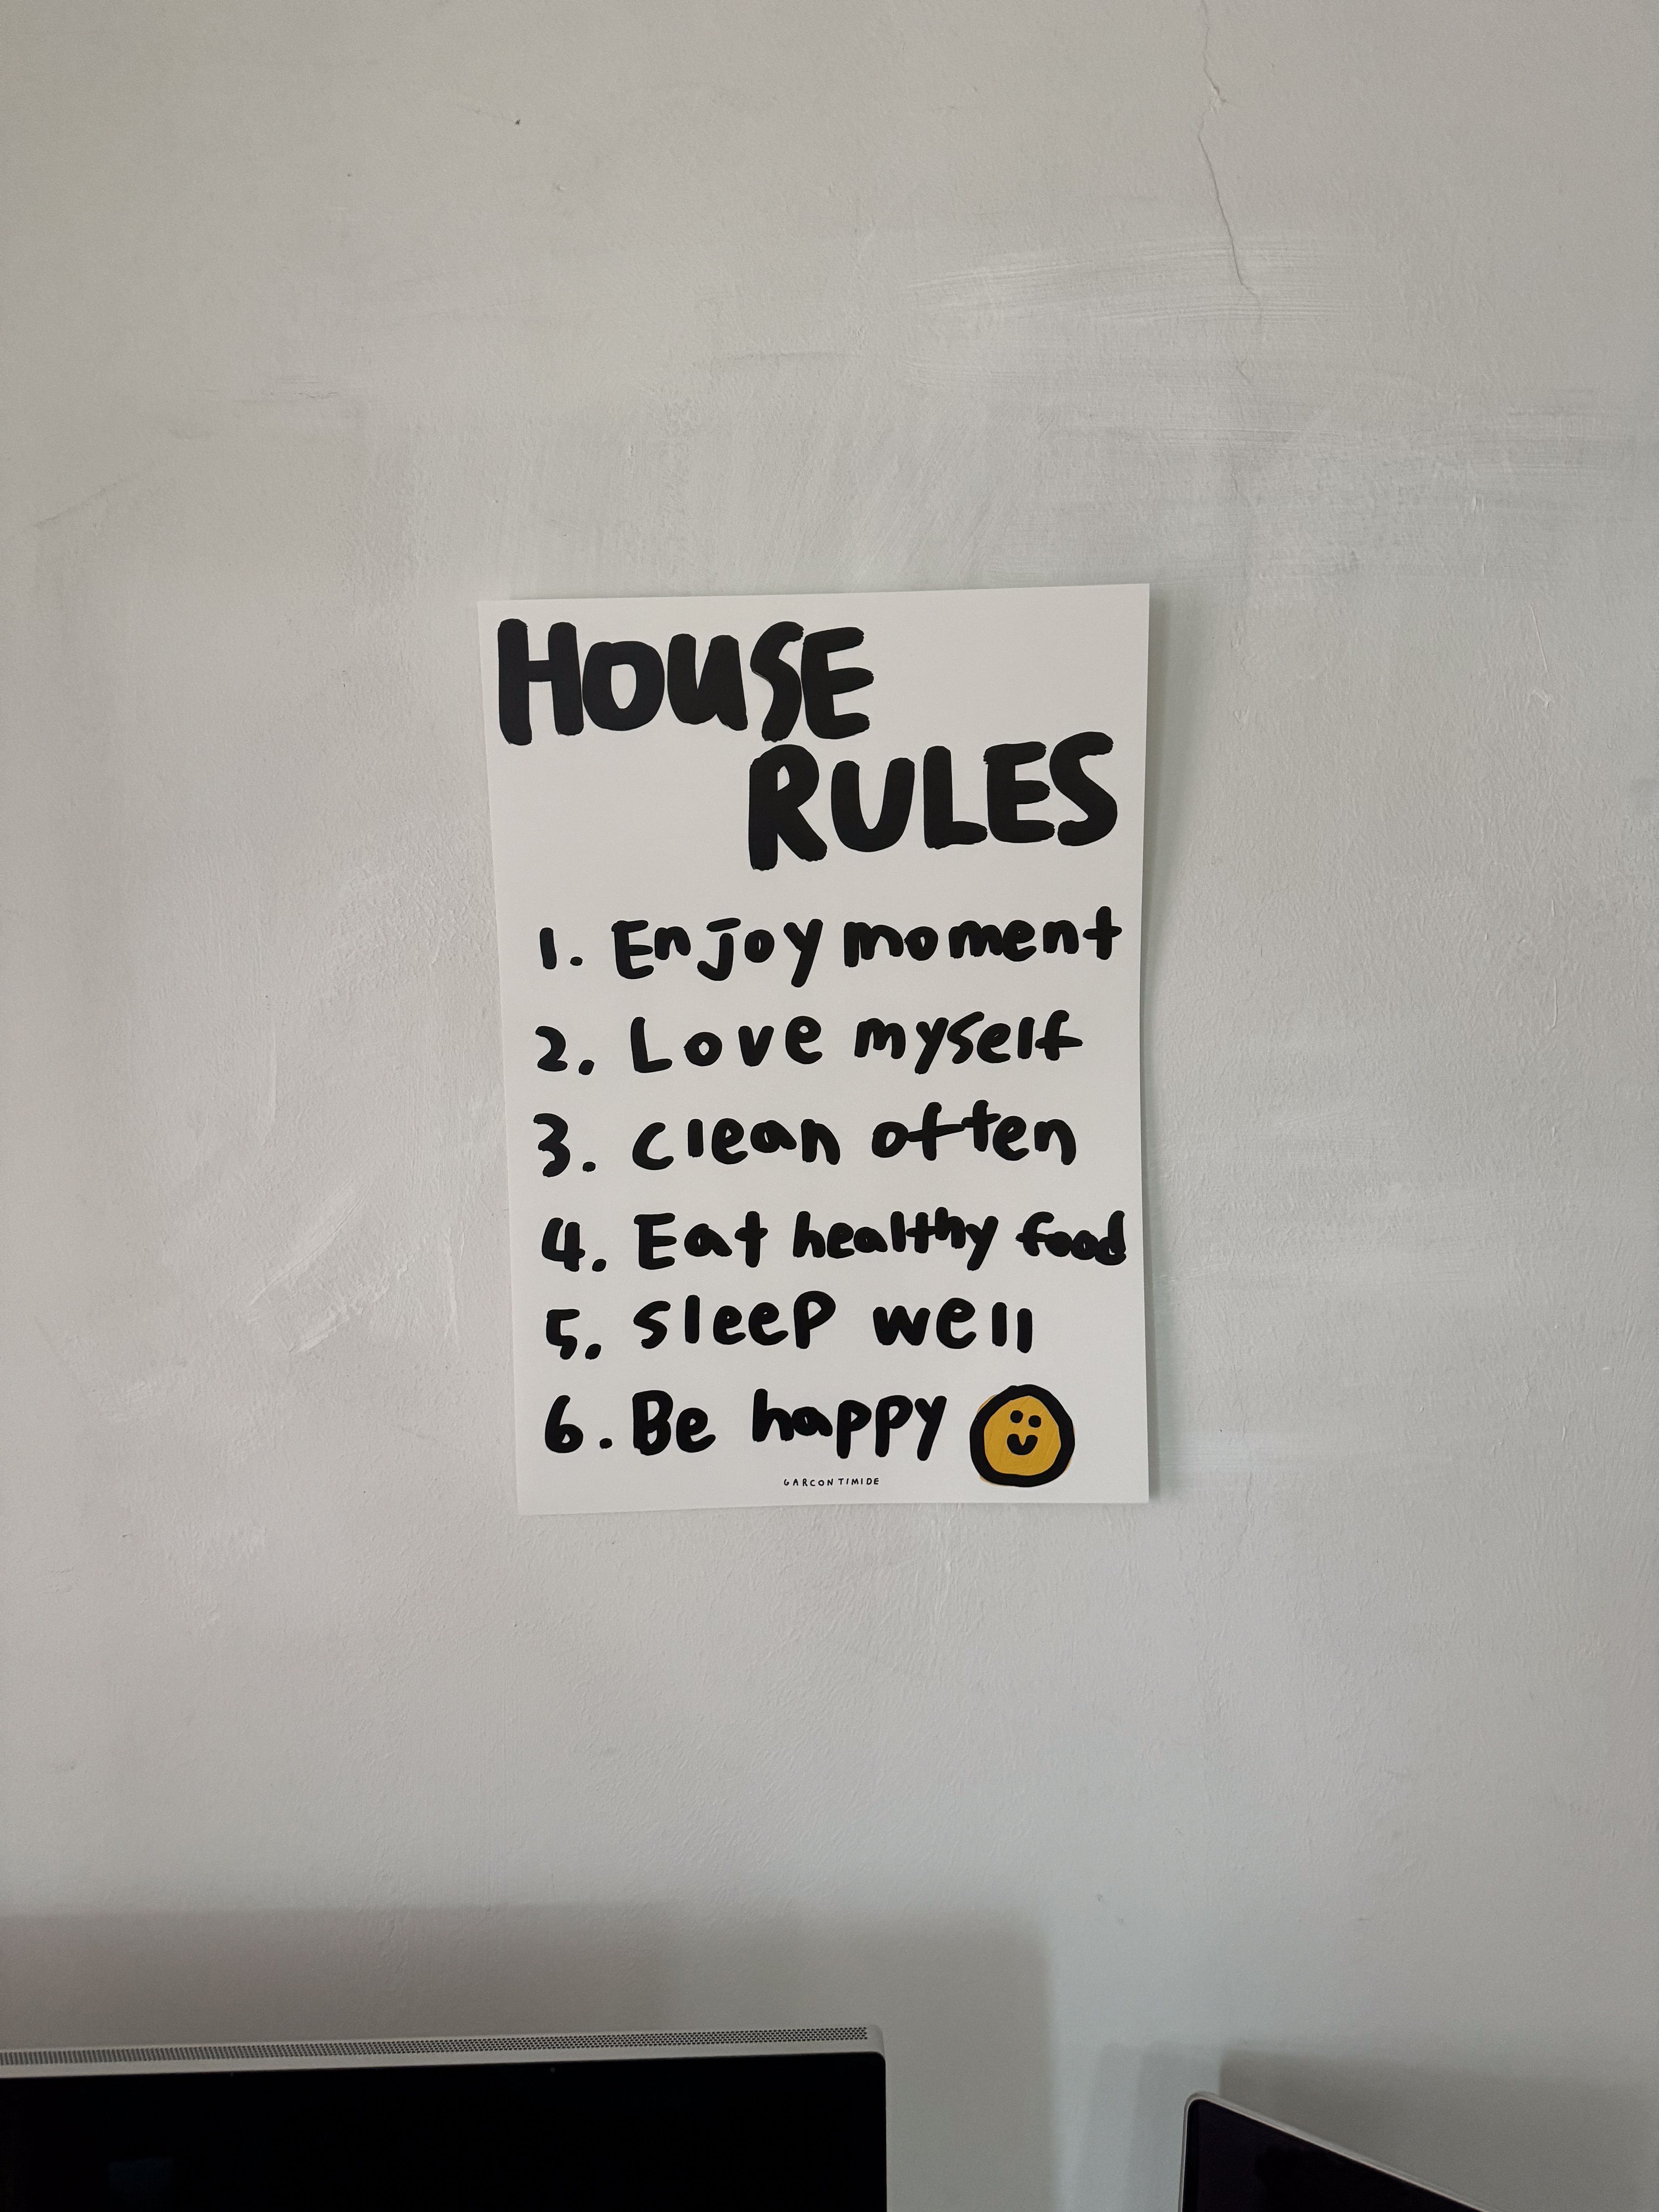 HOUSE
RULES
1. Enjoy moment
2. Love myself
3. clean often
4. Eat healthy food
5. sleep well
6. Be happy
GARCON TIMIDE